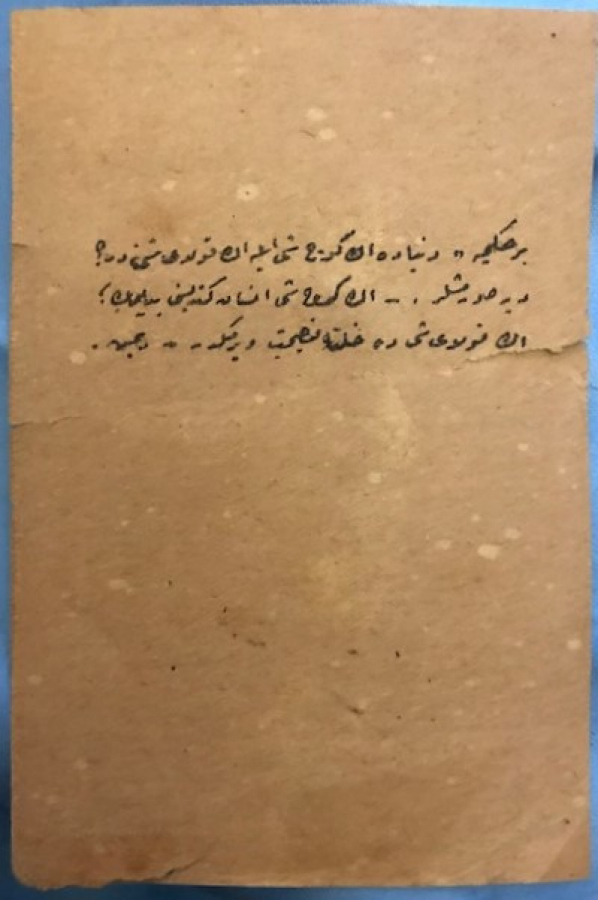 بر حكيمه „ دنياده اك كوچ شى ايله اك قولاى شى نه در؟
ديه صورمشلر . ـ اك كوچ شى انسان كندينى بيلمك؛
اك قولاى شى ده خلقه نصيحت ويرمكدر ـ „ ديمش .